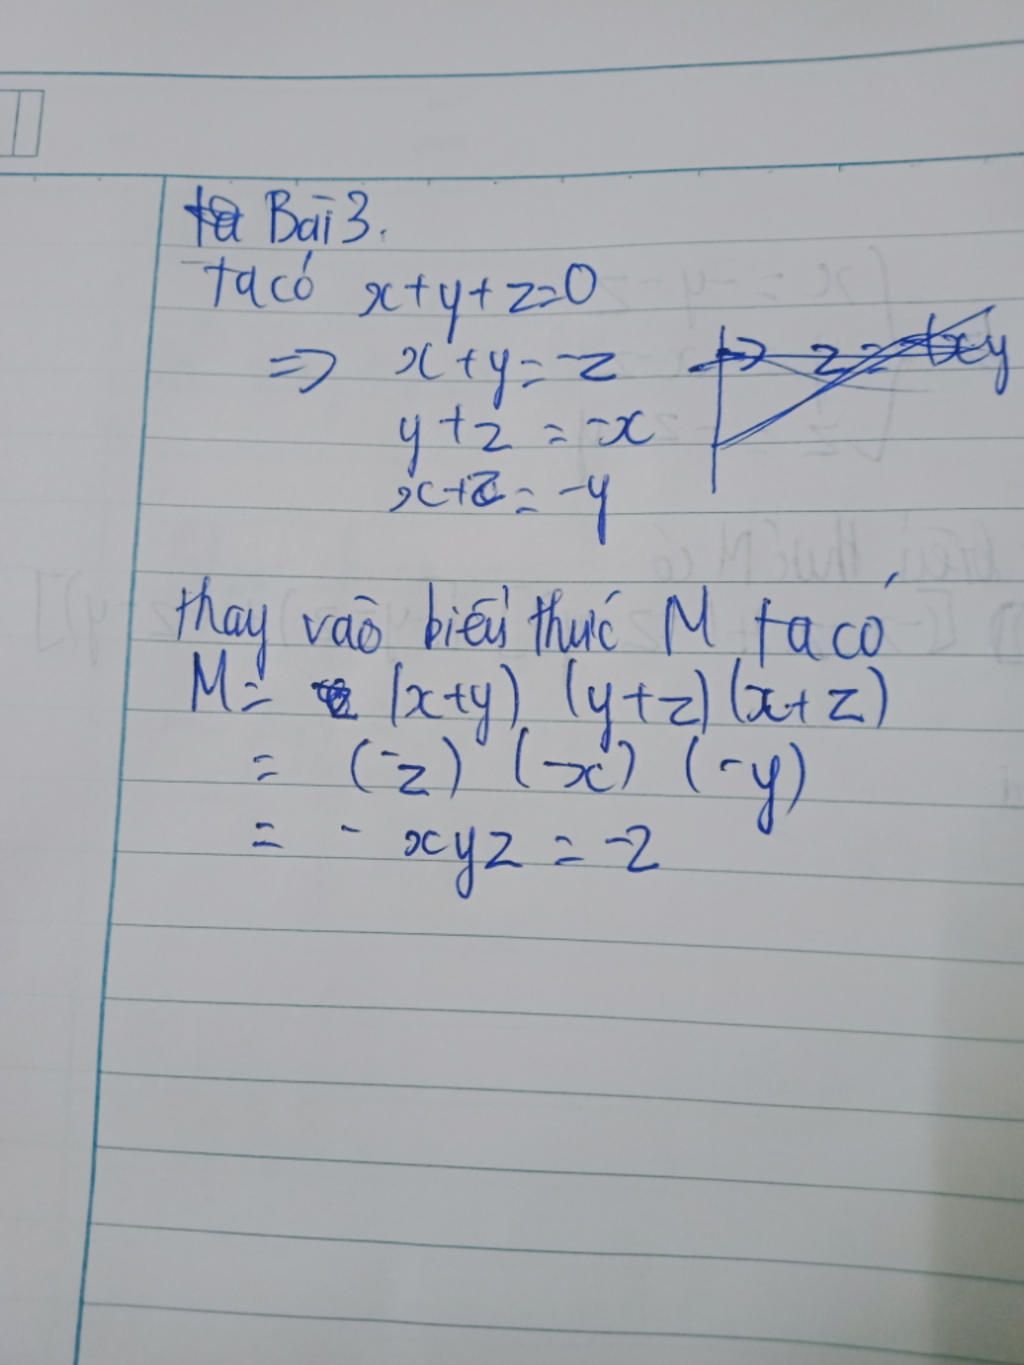 Bài 3.
ta có x+y+z=0
=> x+y=-z => z=
y+z=-x
x+z=-y
thay vào biểu thức M ta có
M= (x+y) (y+z) (x+z)
= (-z) (-x) (-y)
= - xyz = -2